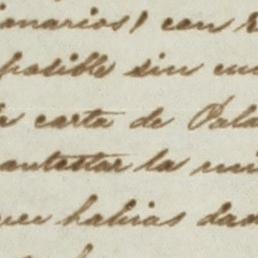 ionarios) con
posible sin
carta de Pala
ontestar la mi
habias dad